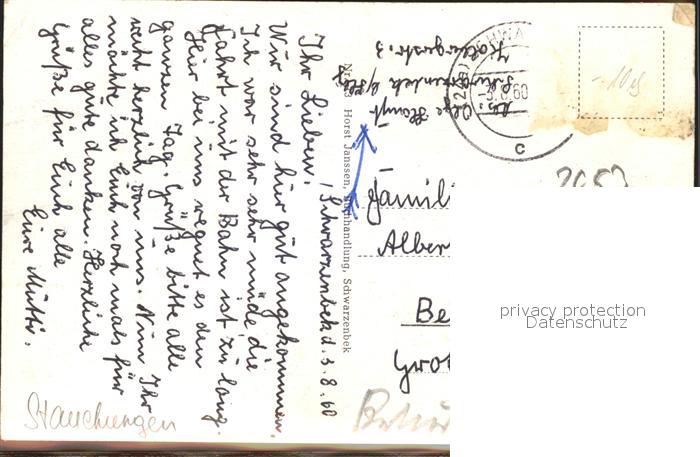 Schwarzenbek d. 3.8.60
Ihr Lieben.
Wir sind hier gut angekommen.
Ich war sehr sehr müde die
Fahrt mit der Bahn ist zu lang.
Hier bei uns regnet es den
ganzen Tag. Grüße bitte alle
recht herzlich von uns. Nun Ihr
möchte ich Euch noch mals für
alles gute danken. Herzliche
Grüße für Euch alle
Eure Mutti.
Stauchungen
Horst Janssen, Buchhandlung, Schwarzenbek
Abs. Olga
Schwarzenbek
3
-3.8.60
c
Famili
Alber
Be
Gro
privacy protection
Datenschutz